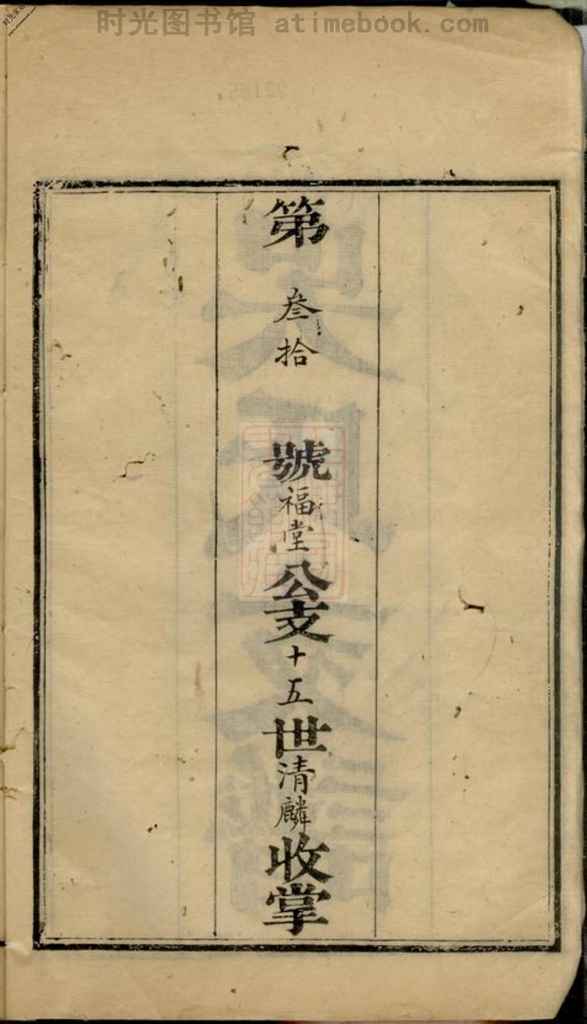 时光图书馆 atimebook.com
第叁拾號福堂公支十五世清麟收掌